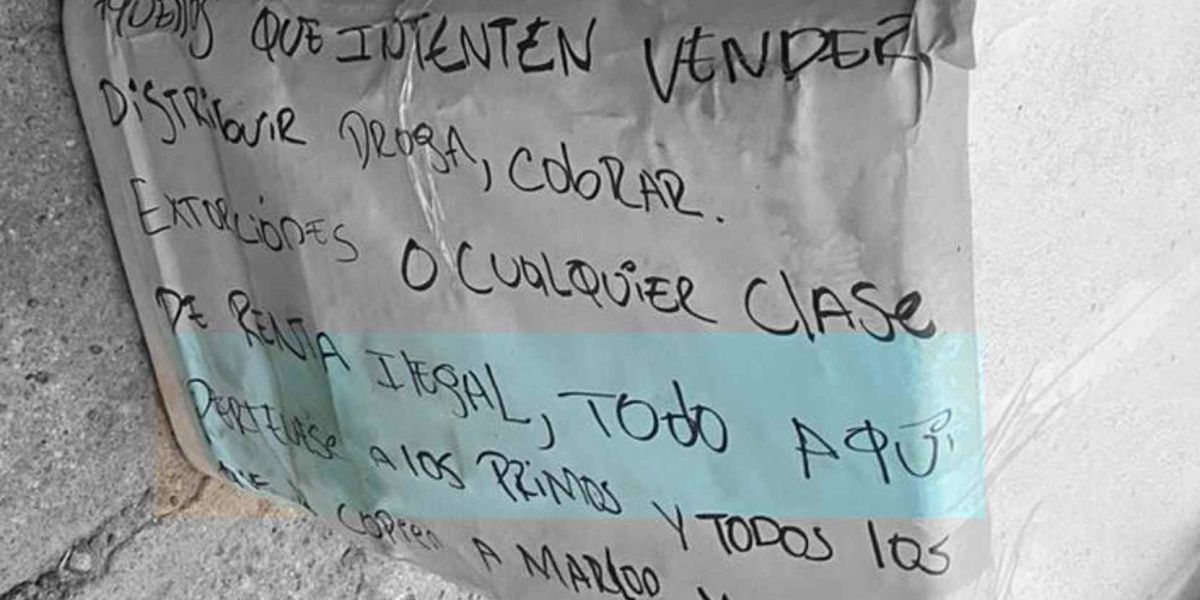 AQUELLOS QUE INTENTEN VENDER,
DISTRIbUIR DROGA, CObRAR.
EXTORCIONES O CUALQUIER ClASe
DE RENTA IlEGAL, TODO AQUÍ
PERTENese A lOS PRIMOS Y TODOS lOS
QUE COPIEN A MARCOO